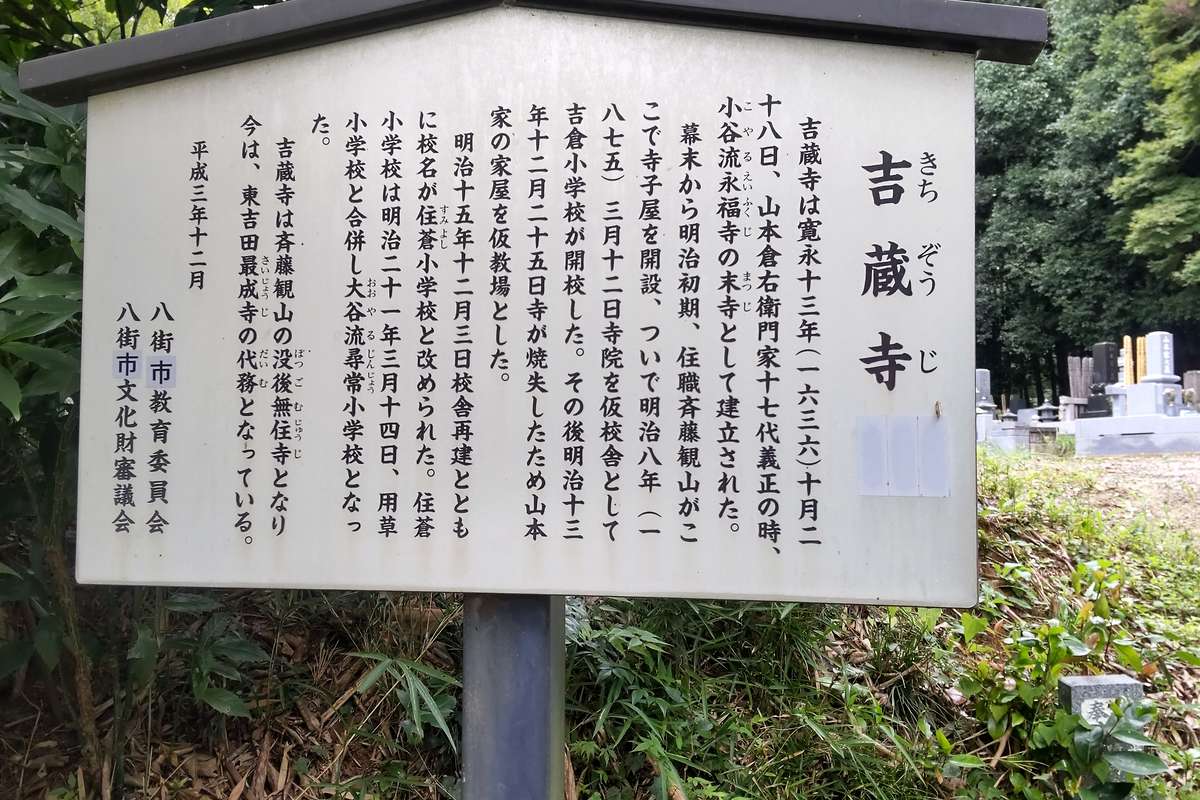 吉蔵寺
きちぞうじ
吉蔵寺は寛永十三年(一六三六)十月二
十八日、山本倉右衛門家十七代義正の時、
小谷流永福寺の末寺として建立された。
こやるえいふくじ
まつじ
幕末から明治初期、住職斉藤観山がこ
こで寺子屋を開設、ついで明治八年(一
八七五)三月十二日寺院を仮校舎として
吉倉小学校が開校した。その後明治十三
年十二月二十五日寺が焼失したため山本
家の家屋を仮教場とした。
明治十五年十二月三日校舎再建ととも
に校名が住蒼小学校と改められた。住蒼
すみよし
小学校は明治二十一年三月十四日、用草
小学校と合併し大谷流尋常小学校となっ
おおやるじんじょう
た。
吉蔵寺は斉藤観山の没後無住寺となり
ぼつごむじゅうじ
今は、東吉田最成寺の代務となっている。
さいじょうじ
だいむ
平成三年十二月
八街市教育委員会
八街市文化財審議会